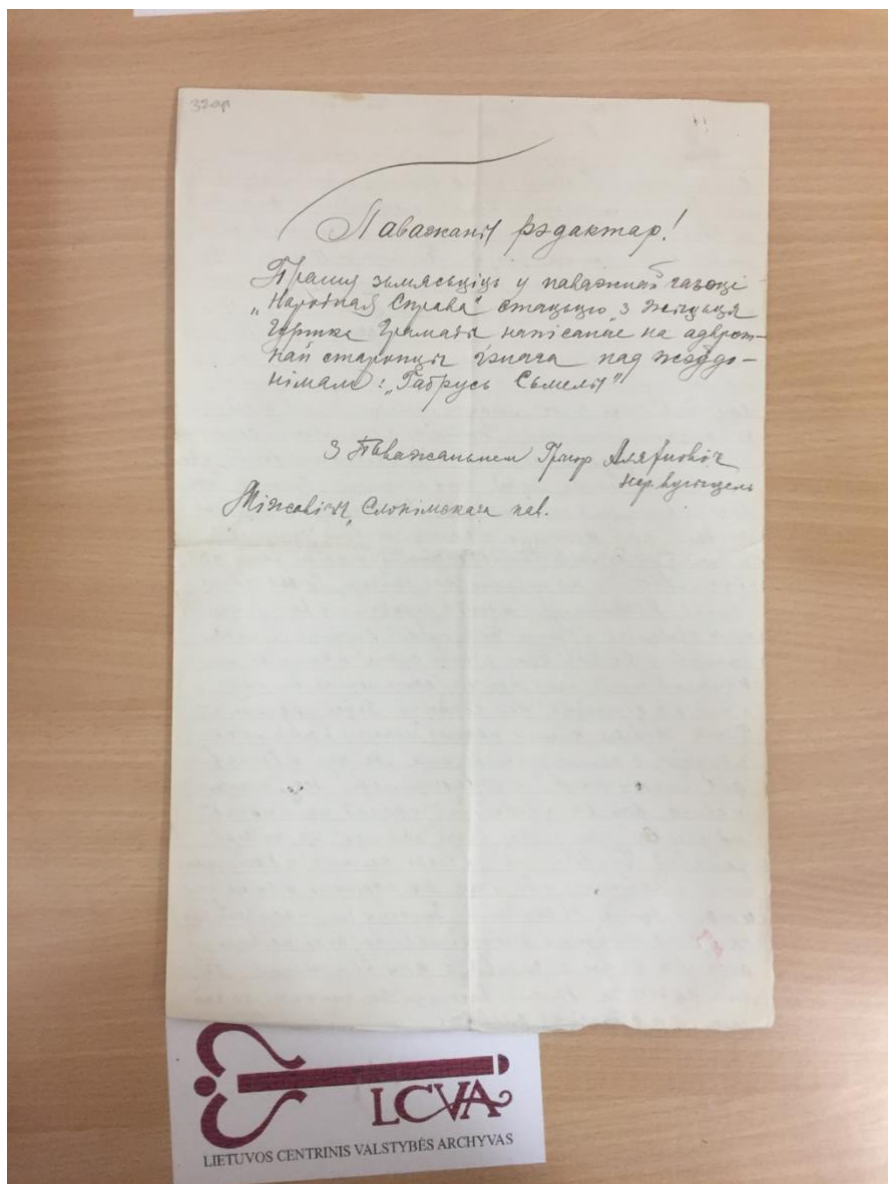 32ар
Паважаны рэдактар!
Прашу зьмясьціць у паважнай газэці
„Народная Справа“ стацьцю з жыцьця
Грамады напісанае на адврот-
най старонцы гэнага пад псэўдо-
німам: „Габрусь Сьмелы“
З Паважаньнем
нар. вучыцель
Міжэвічы, Слонімскага пав.
LCVA
LIETUVOS CENTRINIS VALSTYBĖS ARCHYVAS